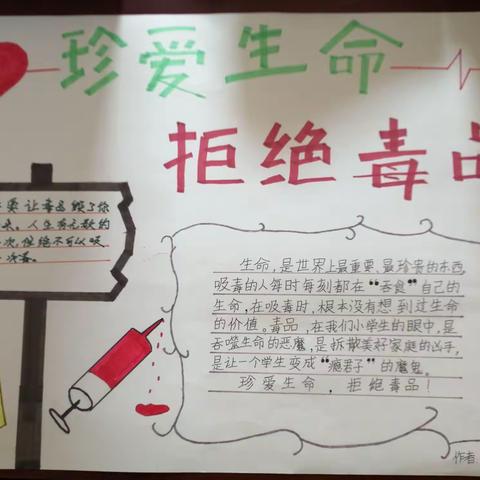 珍爱生命
拒绝毒品
要让毒品毁了你
来。人生有无数的
次,但绝不可以吸
次毒。
生命,是世界上最重要、最珍贵的东西,
吸毒的人每时每刻都在“吞食”自己的
生命,在吸毒时,根本没有想到过生命
的价值。毒品,在我们小学生的眼中,是
吞噬生命的恶魔,是拆散美好家庭的凶手,
是让一个学生变成“瘾君子”的魔鬼。
珍爱生命,拒绝毒品!
作者: